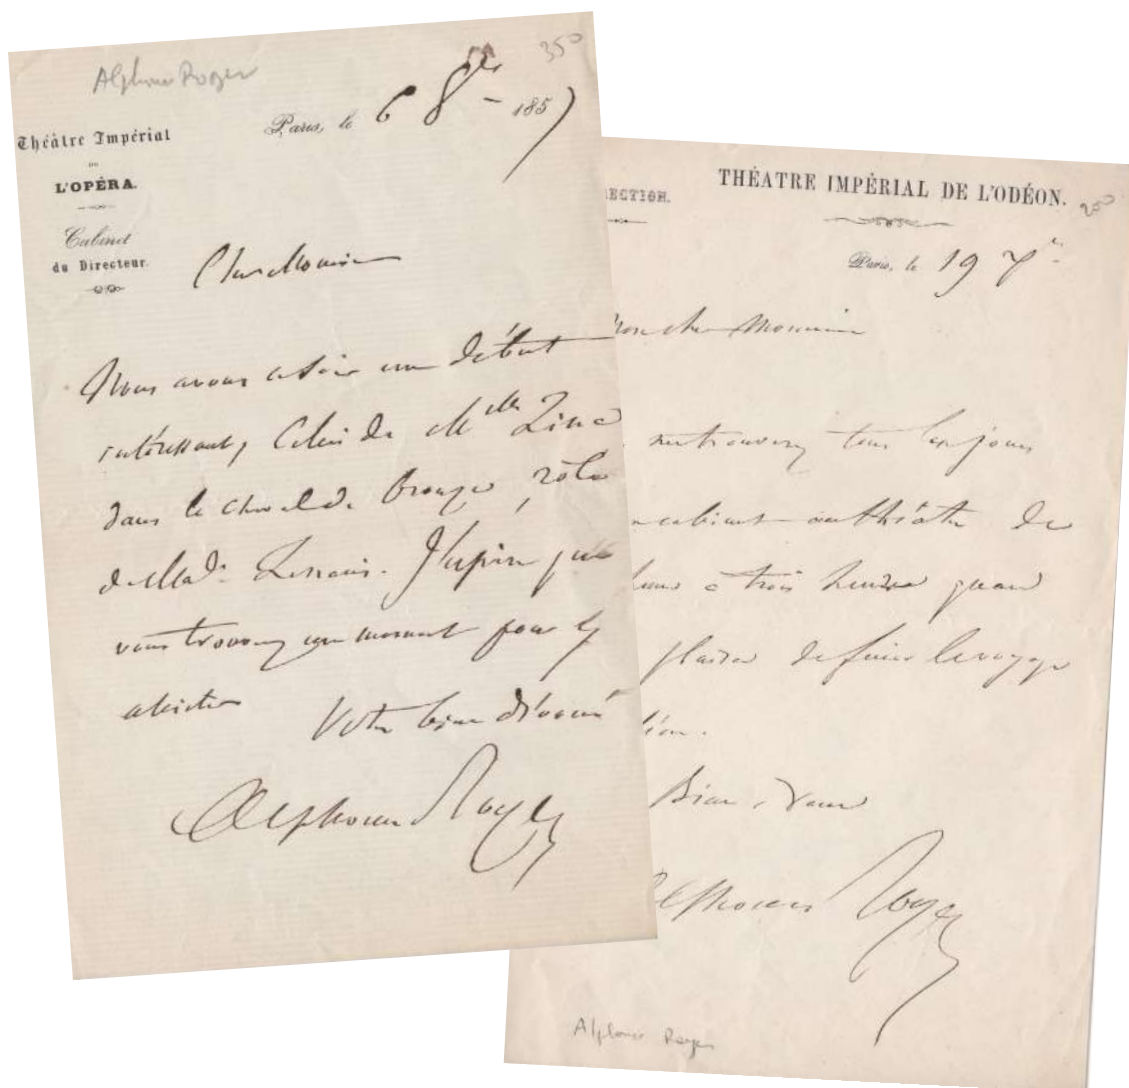 Alphonse Royer
350
Théâtre Impérial
DE
L'OPÉRA.
Cabinet
du Directeur.
Paris, le 6 8bre 1857
Cher Monsieur
Nous avons ce soir un début
intéressant, celui de Mlle Zina
dans le cheval de bronze, rôle
de Mad.
J'espère que
vous trouverez un moment pour y
assister
Votre bien dévoué
Alphonse Royer
ECTION.
THÉATRE IMPÉRIAL DE L'ODÉON.
200
Paris, le 19 7re
mon cher Monsieur
me trouverez tous les jours
cabinet au théâtre de
à trois heures quand
plaisir de faire le voyage
Bien à vous
Alphonse Royer
Alphonse Royer